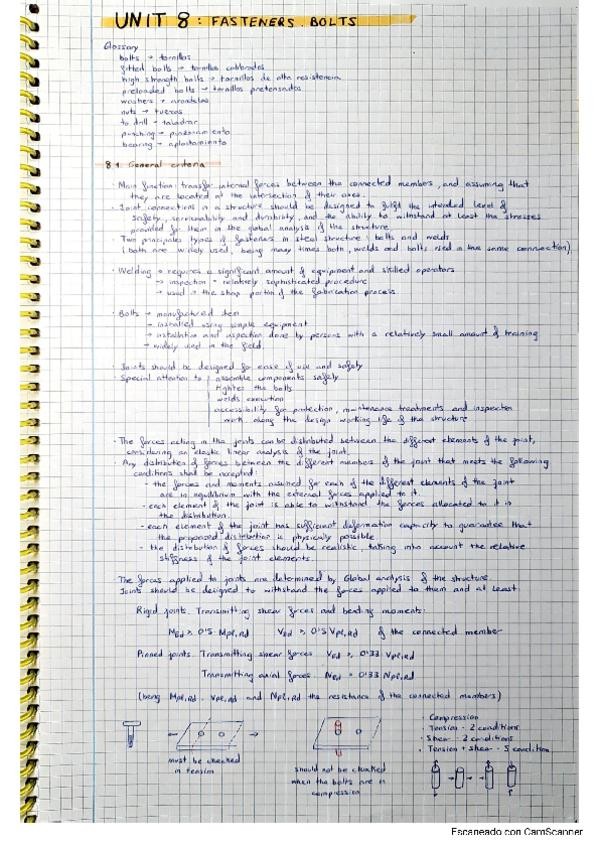 UNIT 8: FASTENERS. BOLTS
Glossary
bolts → tornillos
fitted bolts → tornillos calibrados
high strength bolts → tornillos de alta resistencia
preloaded bolts → tornillos pretensados
washers → arandelas
nuts → tuercas
to drill → taladrar
punching → punzonamiento
bearing → aplastamiento
8.1. General criteria
· Main function: transfer internal forces between the connected members, and assuming that
they are located at the intersection of their axes.
· Joint connections in a structure should be designed to fulfil the intended level of
safety, serviceability and durability, and the ability to withstand at least the stresses
provided for them in the global analysis of the structure
· Two principales types of fasteners in steel structure: bolts and welds
(both are widely used, being many times both, welds and bolts used in the same connection)
· Welding → requires a significant amount of equipment and skilled operators
→ inspection - relatively sophisticated procedure
→ used in the shop portion of the fabrication process
· Bolts → manufactured item
→ installed using simple equipment
→ installation and inspection done by persons with a relatively small amount of training
→ widely used in the field.
· Joints should be designed for ease of use and safety
· Special attention to assemble components safely
tighten the bolts
welds execution
accessibility for protection, maintenance treatments and inspection
work along the design working life of the structure
· The forces acting in the joints can be distributed between the different elements of the joint,
considering an elastic linear analysis of the joint.
· Any distribution of forces between the different members of the joint that meets the following
conditions shall be accepted:
- the forces and moments assumed for each of the different elements of the joint
are in equilibrium with the external forces applied to it.
- each element of the joint is able to withstand the forces allocated to it in
the distribution.
- each element of the joint has sufficient deformation capacity to guarantee that
the proposed distribution is physically possible
- the distribution of forces should be realistic, taking into account the relative
stiffness of the joint elements.
The forces applied to joints are determined by Global analysis of the structure.
Joints should be designed to withstand the forces applied to them and at least:
Rigid joints. Transmitting shear forces and bending moments:
MEd ≥ 0'5 Mpl,Rd VEd ≥ 0'5 Vpl,Rd of the connected member
Pinned joints. Transmitting shear forces VEd ≥ 0'33 Vpl,Rd
Transmitting axial forces NEd ≥ 0'33 Npl,Rd
(being Mpl,Rd, Vpl,Rd and Npl,Rd the resistance of the connected members)
must be checked
in tension
should not be checked
when the bolts are in
compression
· Compression
· Tension - 2 conditions
· Shear - 2 conditions
· Tension + shear - 5 conditions
Escaneado con CamScanner